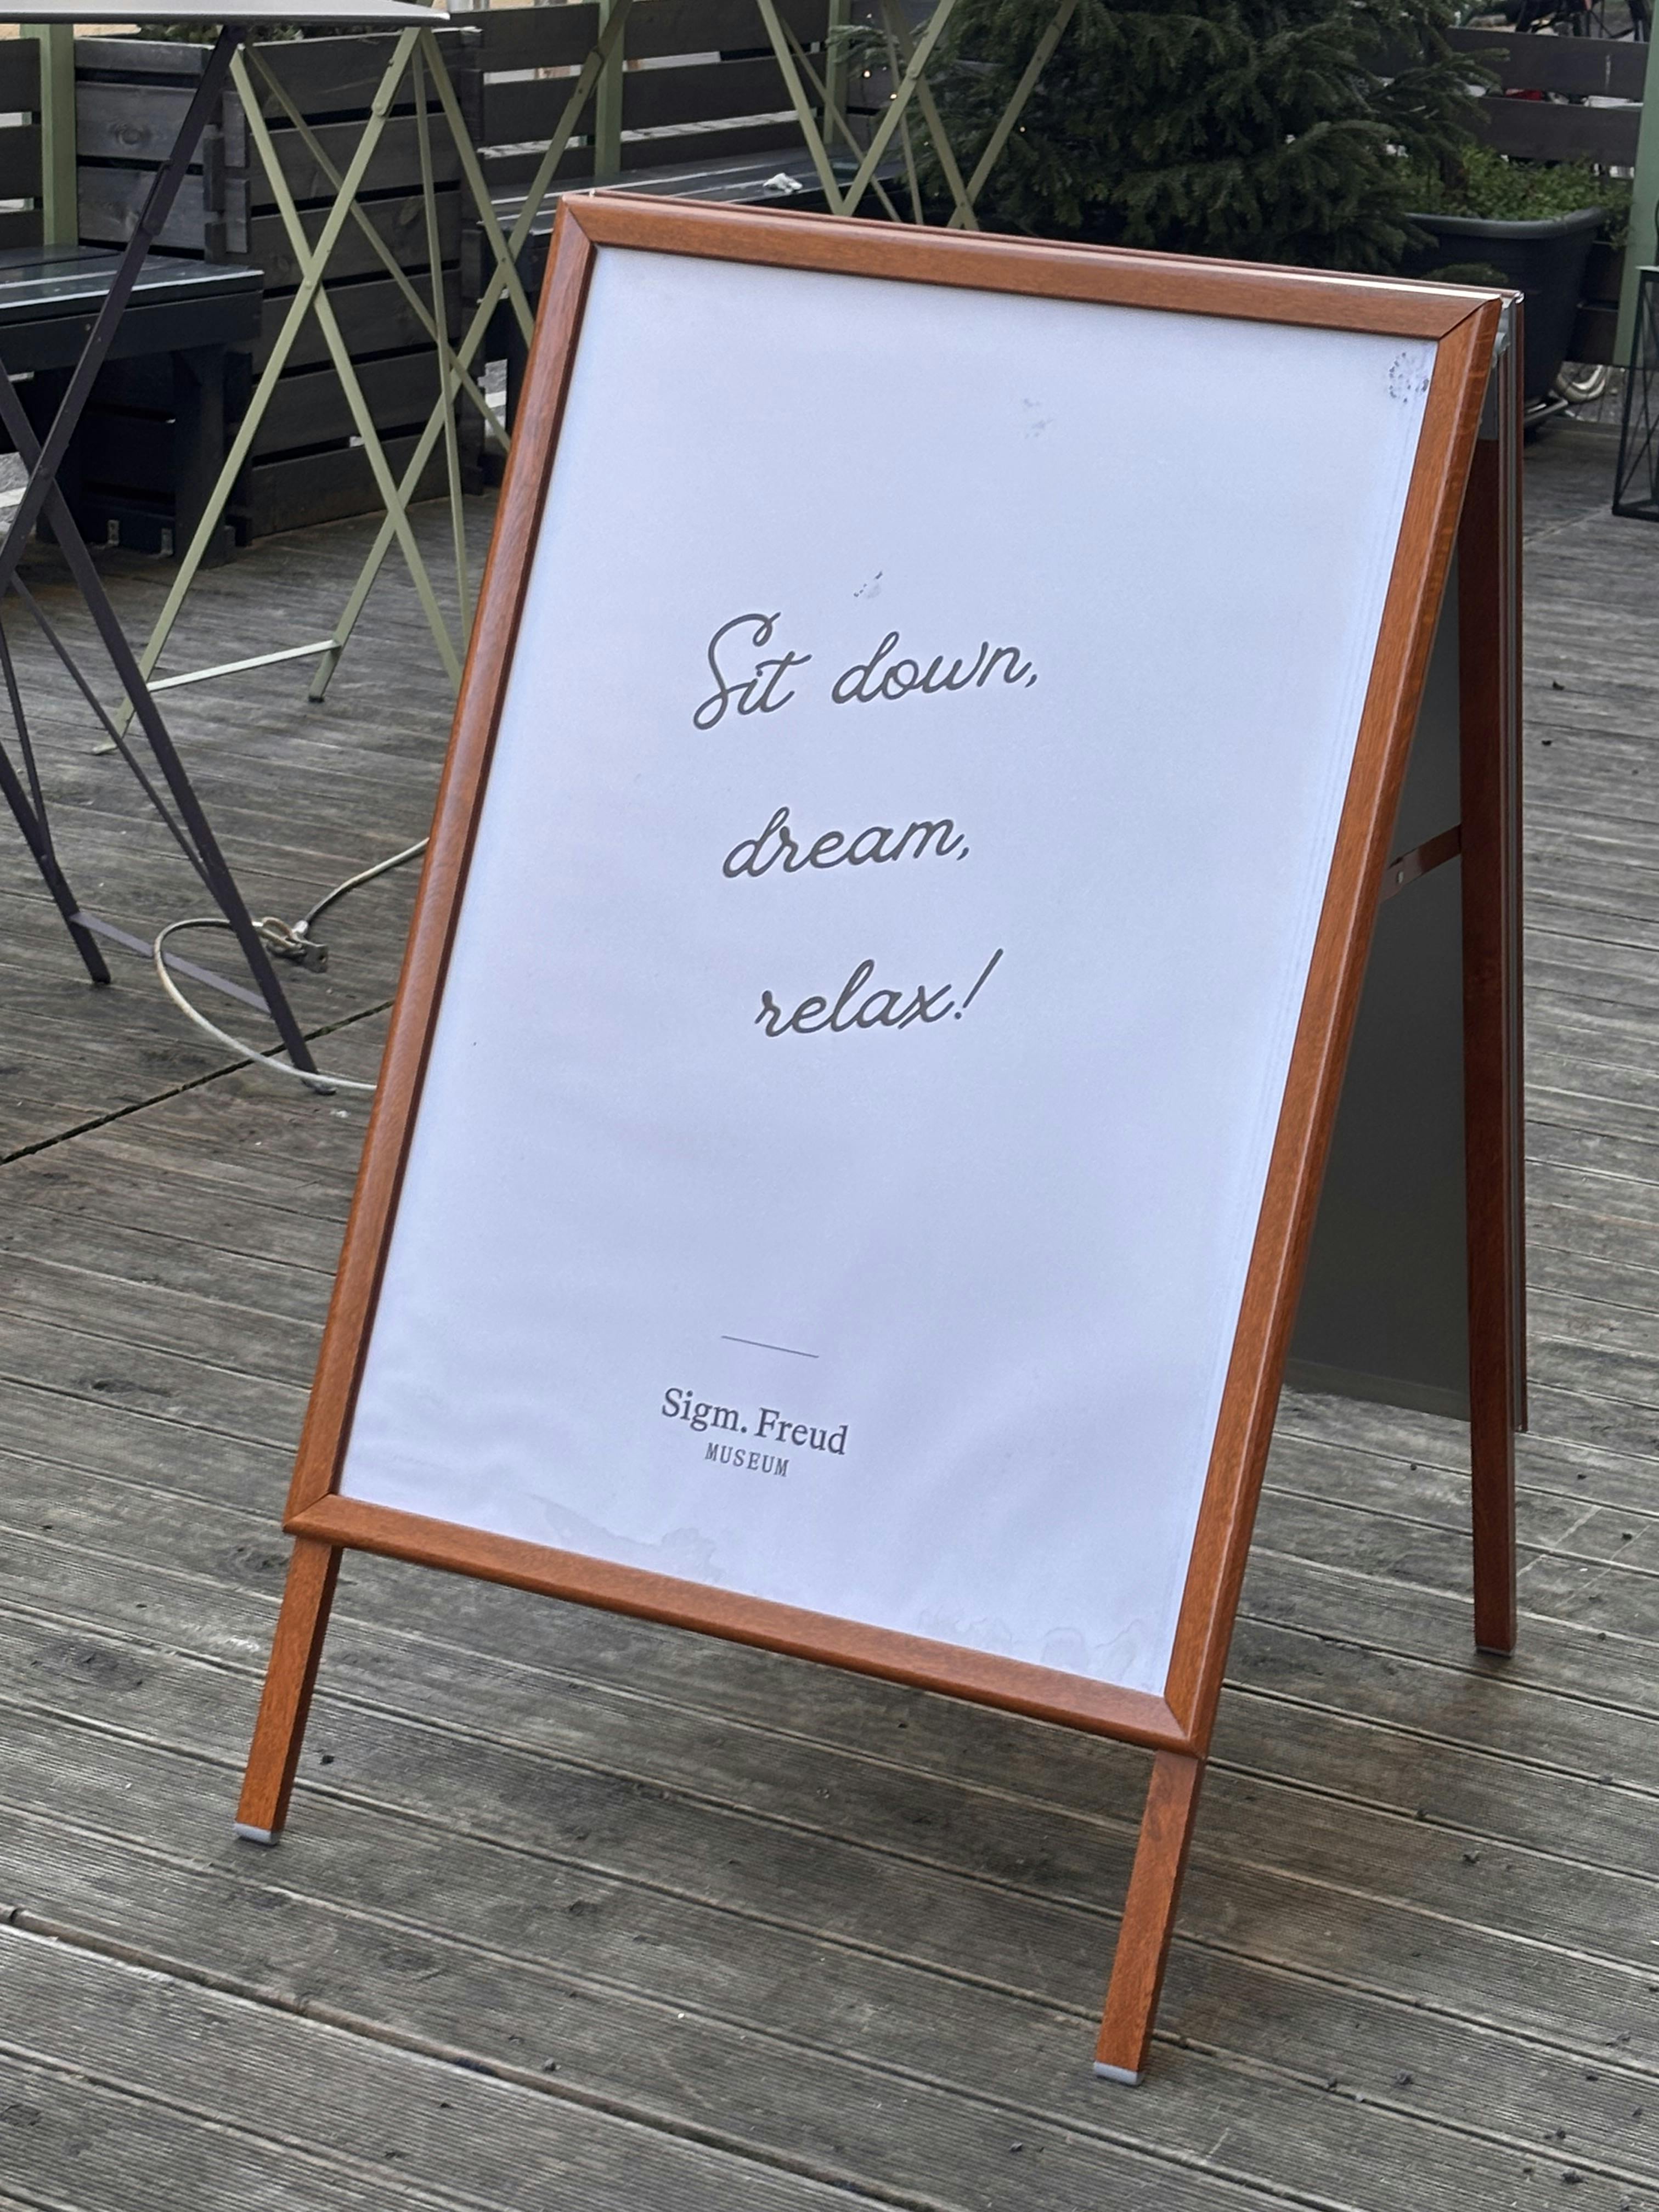 Sit down,
dream,
relax!
Sigm. Freud
MUSEUM